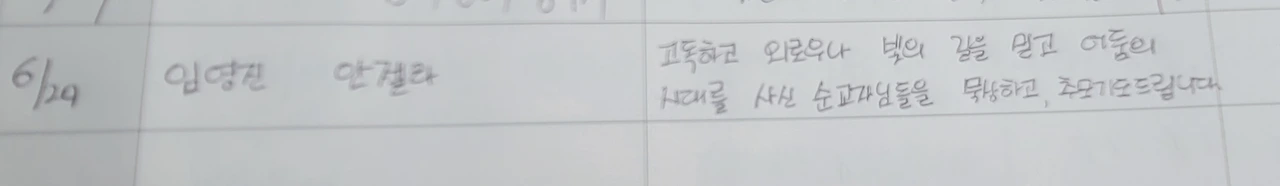 6/29 임영진 안젤라 고독하고 외로우나 빛의 길을 믿고 어둠의
시대를 사신 순교자님들을 묵상하고, 추모기도드립니다